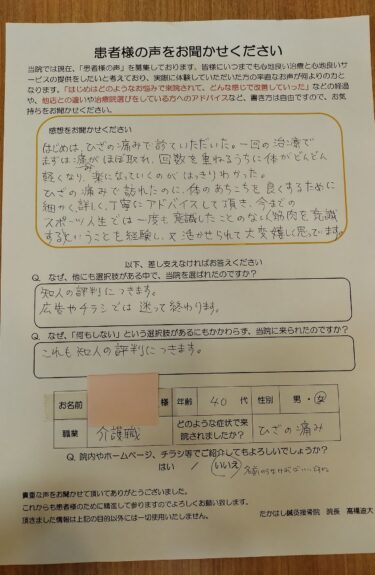 患者様の声をお聞かせください
当院では現在、「患者様の声」を募集しております。皆様にいつまでも心地良い治療と心地良いサ
ービスの提供をしたいと考えており、実際に体験していただいた方の率直なお声が何よりの力とな
ります。「はじめはどのようなお悩みで来院されて、どんな感じで改善していった」などの経過
や、他店との違いや治療院選びをしている方へのアドバイスなど、書き方は自由ですので、お気
持ちをお聞かせください。
感想をお聞かせください
はじめは、ひざの痛みで診ていただいた。一回の治療で
まずは痛みがほぼ取れ、回数を重ねるうちに体がどんどん
軽くなり、楽になっていくのがはっきりわかった。
ひざの痛みで訪れたのに、体のあちこちを良くするために
細かく詳しく、丁寧にアドバイスして頂き、今までの
スポーツ人生では一度も意識したことのない筋肉を意識
するということを経験し、又活かせられて大変嬉しく思っています。
以下、差し支えなければお答えください
Q. なぜ、他にも選択肢がある中で、当院を選ばれたのですか?
知人の評判につきます。
広告やチラシでは迷って終わります。
Q. なぜ、「何もしない」という選択肢があるにもかかわらず、当院に来られたのですか?
これも知人の評判につきます。
お名前 様 年齢 40 代 性別 男・女
職業 介護職 どのような症状で来院されましたか? ひざの痛み
Q. 院内やホームページ、チラシ等でご紹介してもよろしいでしょうか?
はい / いいえ
貴重な声をお聞かせて頂いてありがとうございました。
これからも患者様のために精進して参りますのでよろしくお願い致します。
頂きました情報は上記の目的以外には一切使用いたしません。
たかはし鍼灸接骨院 院長 高橋迪大